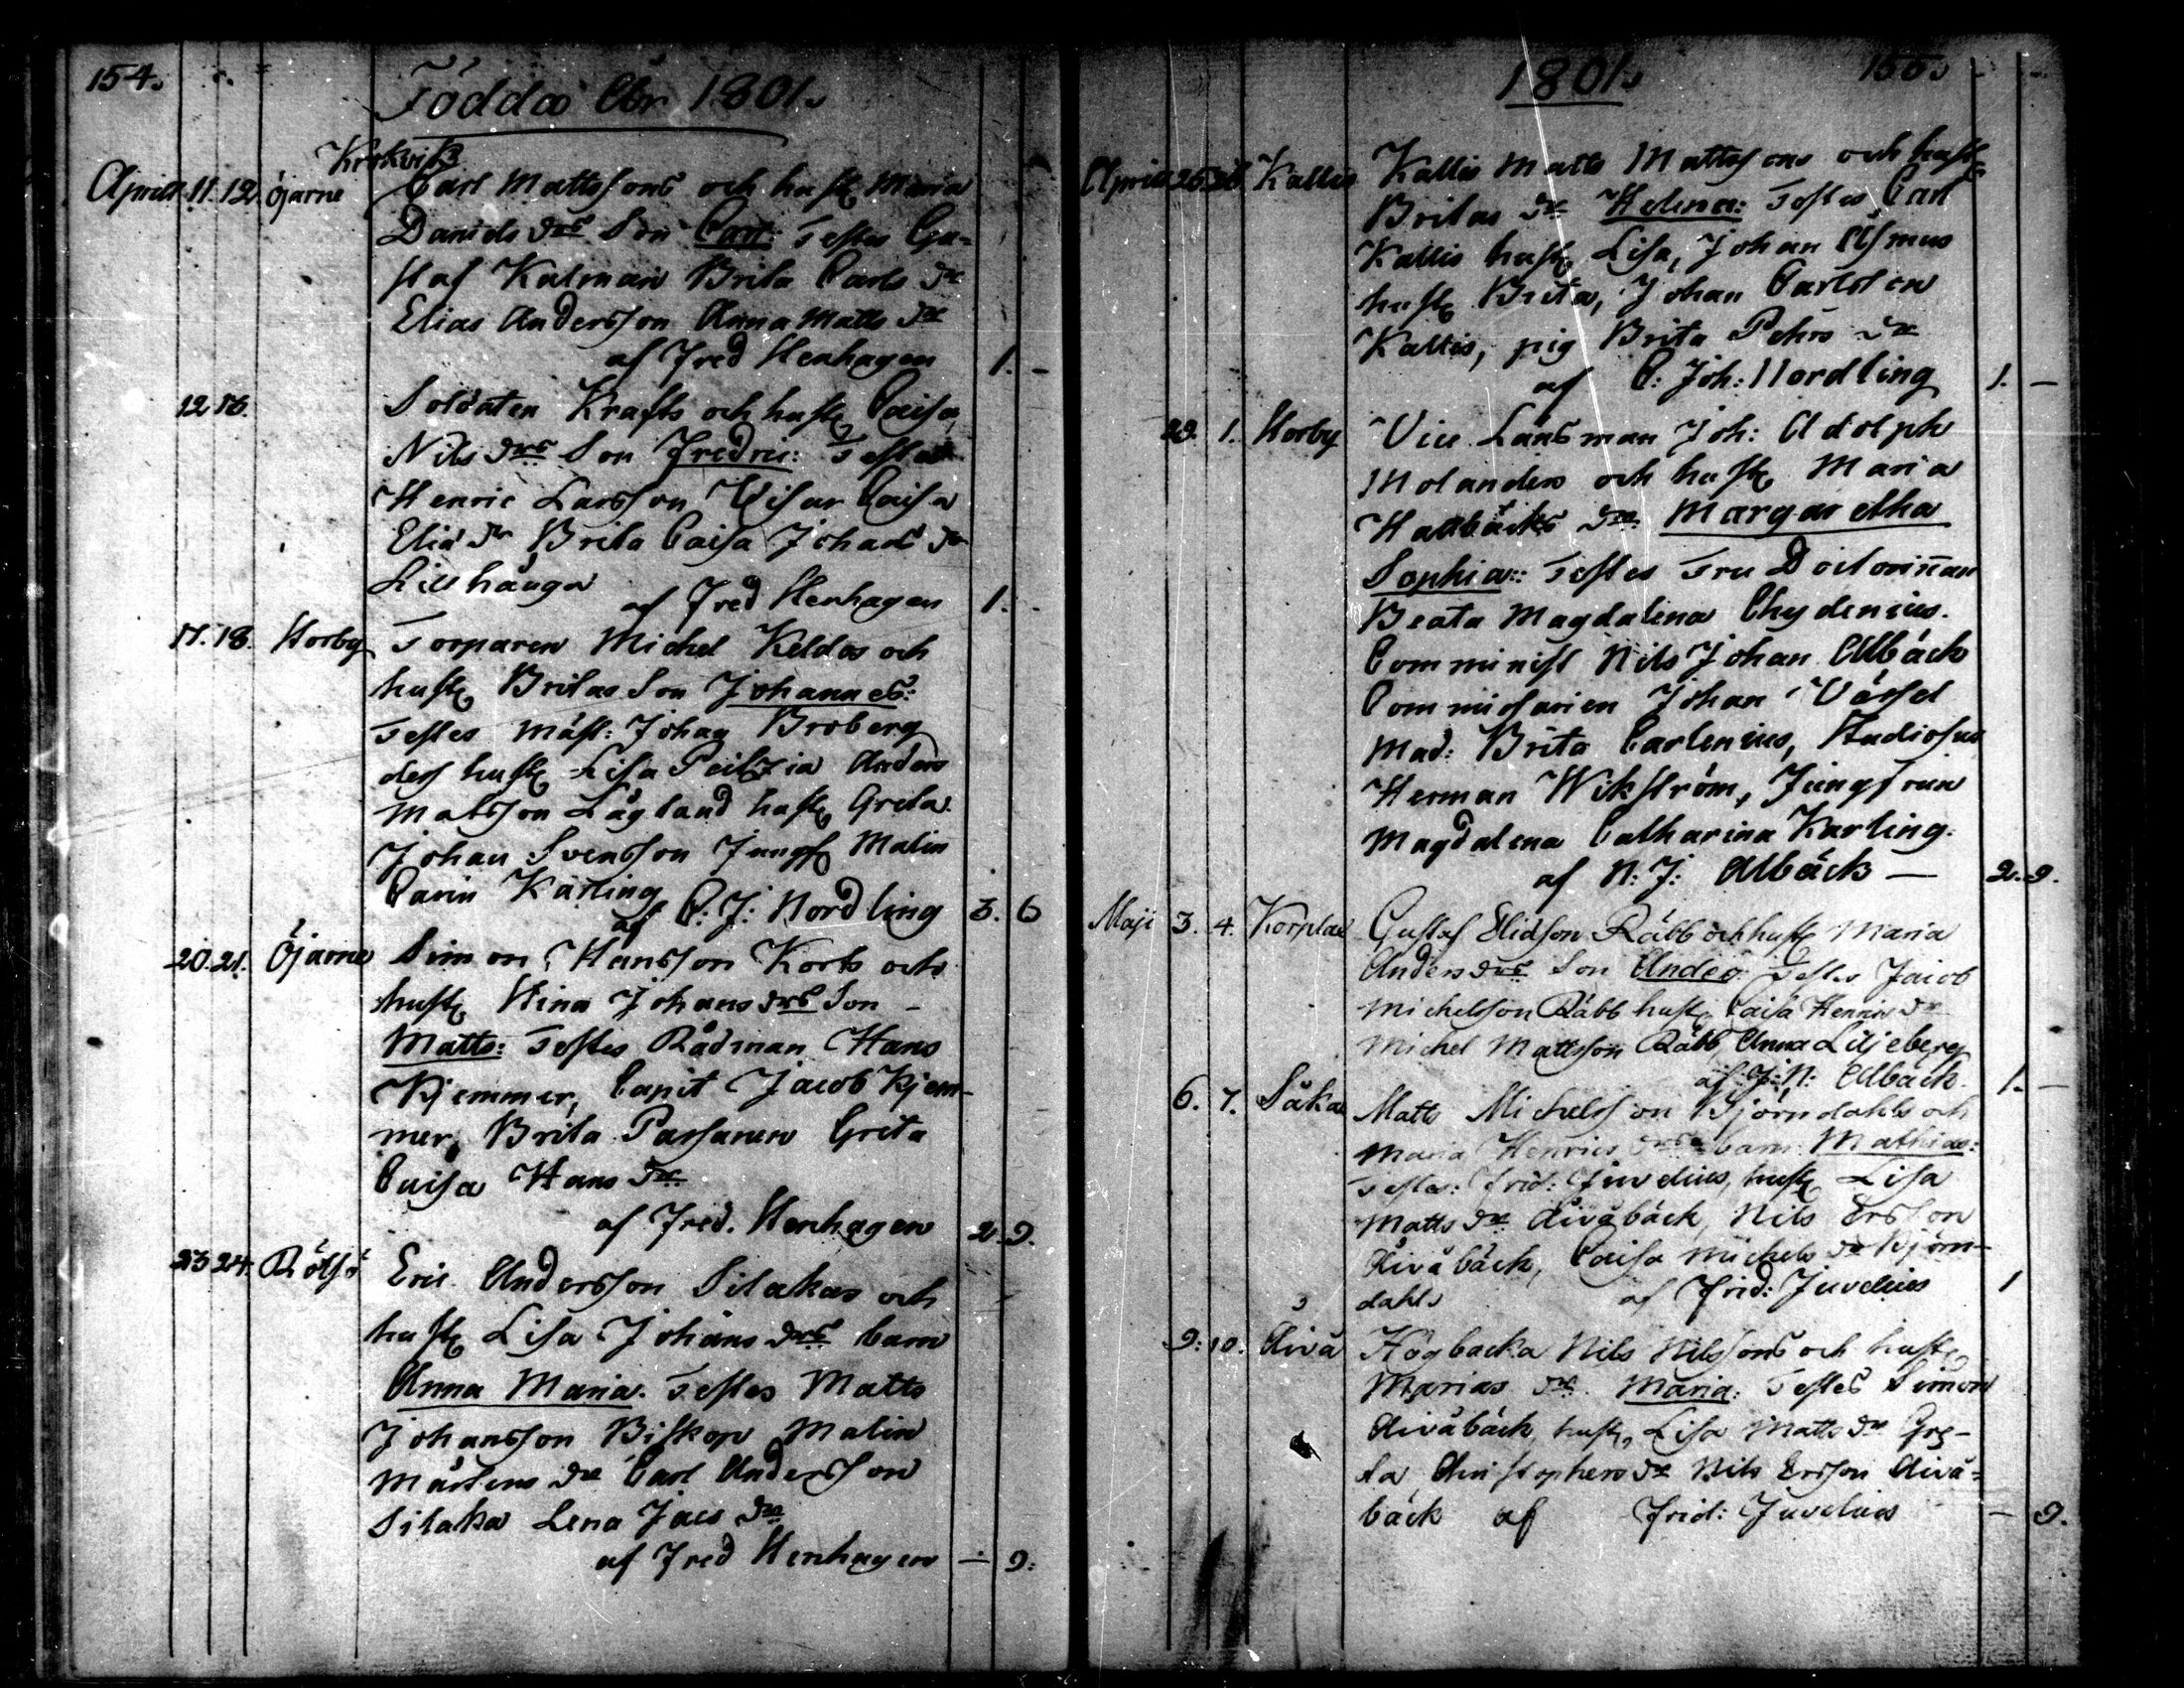 154.
Födda Åhr 1801.
Krokvik
Aprill 11. 12. Öjarne Carl Mattssons och hust Maria
Daniels drs Son Carl: Testes Gu-
staf Kalman Brita Carls dr
Elias Andersson Anna Matts dr
af Fred Henhagen 1. -
12 Soldaten Krafts och hust Caisa
Nils drs Son Fredric: Testes
Henric Larsson Caisa
Elia dr Brita Caisa Johans dr
Lillhånga
af Fred Henhagen 1. -
17. 18. Storby Torparen Michel Keldos och
hust Britas Son Johannes:
Testes Mäst: Johan Broberg
dess hust Lisa Anders
Matsson Lågland hust Greta
Johan Svensson Jungf Malin
Carin Karling
af C: J: Nordling 3. 6
20. 21. Öjarne Simon Hansson Korts och
hust Stina Johans drs Son -
Matts: Testes Rådman Hans
Kjemmer, Capit Jacob Kjem-
mer, Brita Greta
Caisa Hans dr
af Fred. Henhagen 2. 9.
23 24. Rötsö Eric Andersson Silakas och
hust Lisa Johans drs barn
Anna Maria. Testes Matts
Johansson Biskop Malin
Mårtens dr Carl Andersson
Silaka Lena Jacs dr
af Fred Henhagen - 9:
1801.
155.
Aprill 25 26 Kallis Kallis Matts Mattssons och hust
Britas dr Helena: Testes Carl
Kallis hust Lisa, Johan Asmus
hust Brita, Johan Carlsson
Kallis, pig Brita Pehrs dr
af C: Joh: Nordling 1. -
29. 1. Storby Vice Länsman Joh: Adolph
Molanders och hust Maria
Hallbäcks dr Margaretha
Sophia: Testes Fru Doctorinnan
Beata Magdalena Chydenius.
Comminist Nils Johan Albäck
Commissarien Johan
Mad: Brita Carlenius, Studiosus
Herman Wikström, Jungfrun
Magdalena Catharina Karling.
af N: J: Albäck — 2. 9.
Maji 3. 4. Korplax Gustaf Elidson Räbb och hust Maria
Anders drs Son Anders: Testes Jacob
Michelsson Räbb hust Caisa Henrics dr
Michel Mattsson Räbb, Anna Liljeberg
af J: N: Albäck. 1. -
6. 7. Såka Matts Michelsson Björndahls och
Maria Henrics drs barn Mathias:
Testes: Frid: Juvelius, hust Lisa
Matts dr Åivåbäck, Nils Ersson
Åivåbäck, Caisa Michels dr Björn-
dahls af Frid: Juvelius 1
9: 10. Åivå Högbacka Nils Nilssons och hust
Marias dr. Maria: Testes Simon
Åivåbäck, hust, Lisa Matts dr Gre-
ta Christophers dr Nils Ersson Åivå-
bäck af Frid: Juvelius - 9.